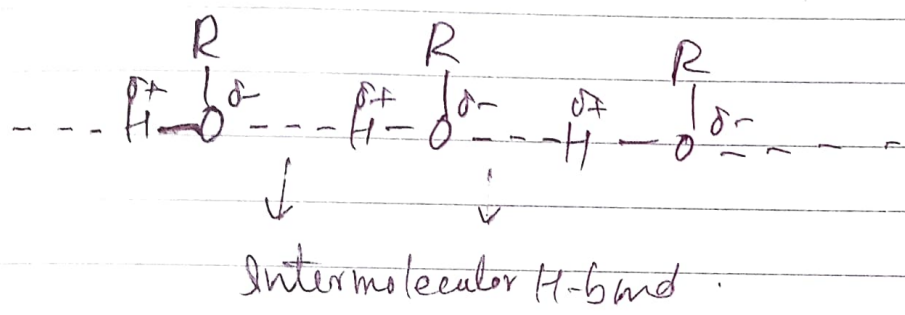 R R R
δ+ δ- δ+ δ- δ+ δ-
--- H-O ---- H-O ---- H-O ----
Intermolecular H-bond.